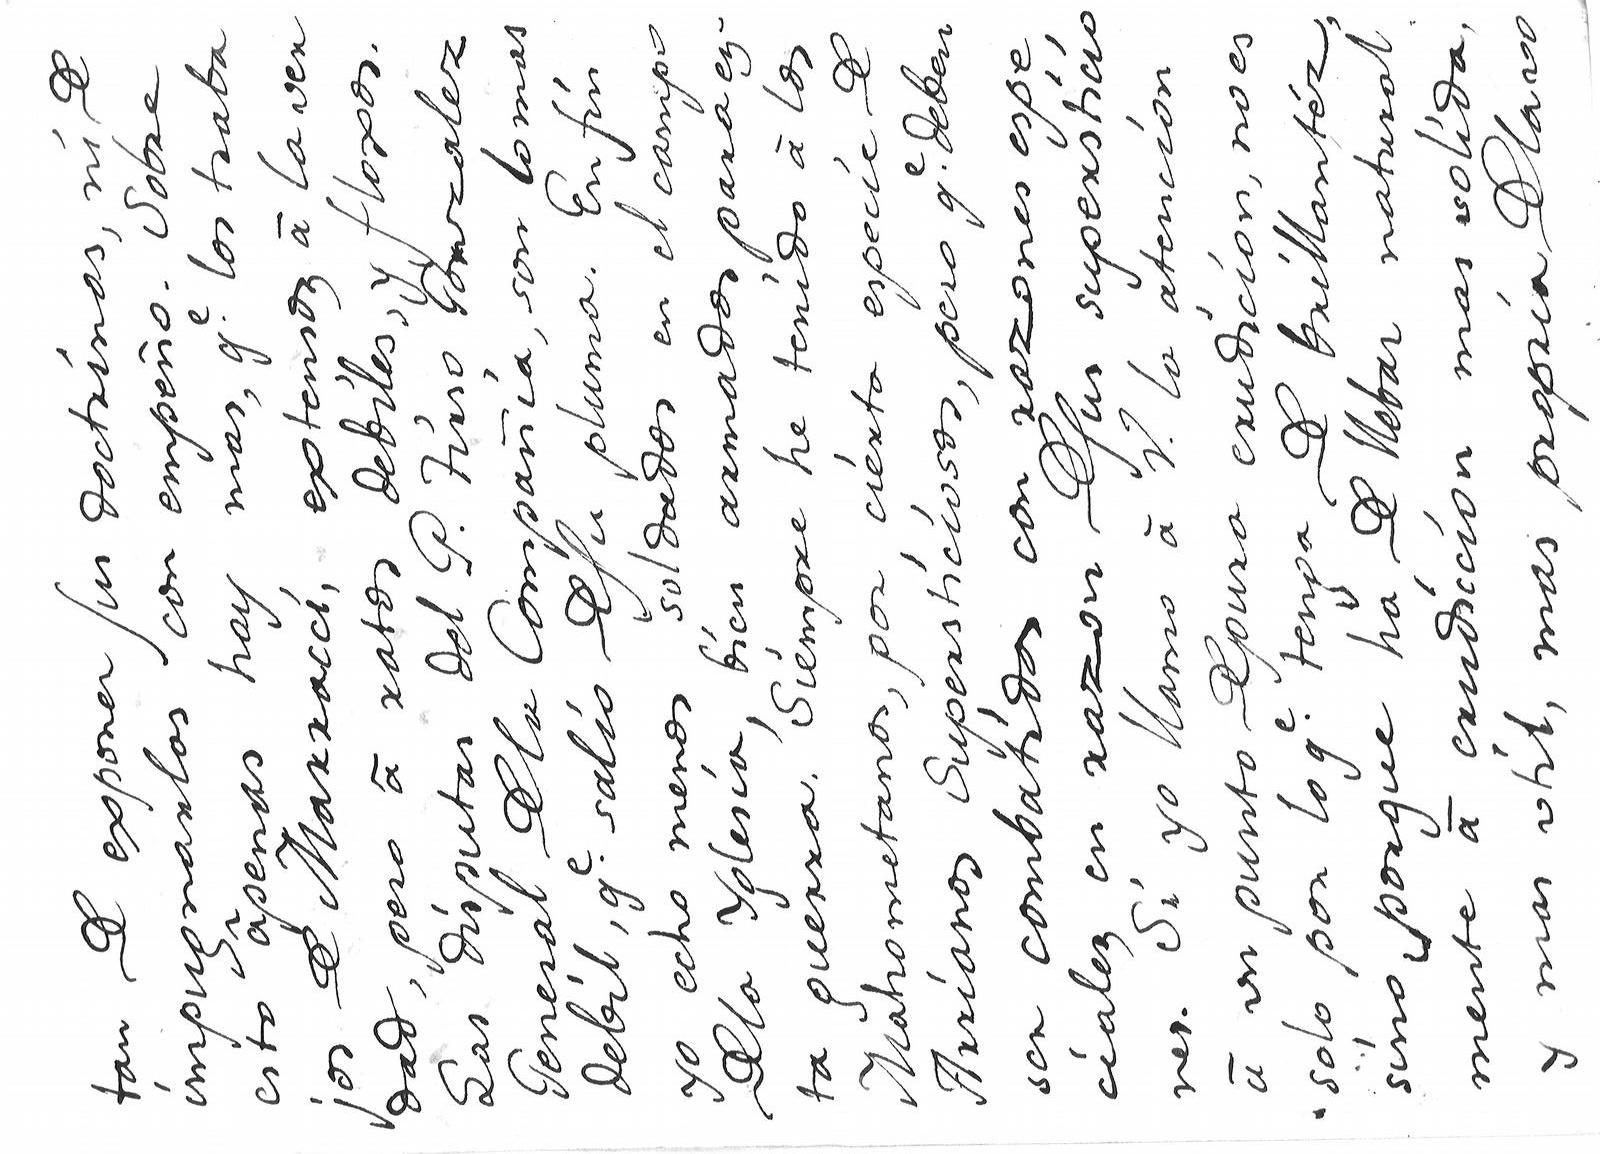 tan de exponer sus doctrinas, ni de
impugnarlos con empeño. Sobre
esto āpenas hay mas, q.e los traba
jos de Marracci, extensos ā la ver
dad, pero ā ratos debiles, y floxos.
Las disputas del P. Tirso Gonzalez
General de la Compañia, son lo mas
debil, q.e salio de su pluma. En fin
yo echo menos soldados en el campo
de la Yglesia, bien armados para es-
ta guerra. Siempre he tenido ā los
Mahometanos, por cierta especie de
Arrianos supersticiosos, pero q.e deben
ser combatidos con razones espe
ciales en razon de sus supersticio
nes. Si yo llamo ā V. la atencion
ā un punto de pura erudicion, no es
solo por lo q.e tenga de brillantéz,
sino porque ha de llebar natural
mente ā erudiccion mas solida,
y mas util, mas propria de la vo